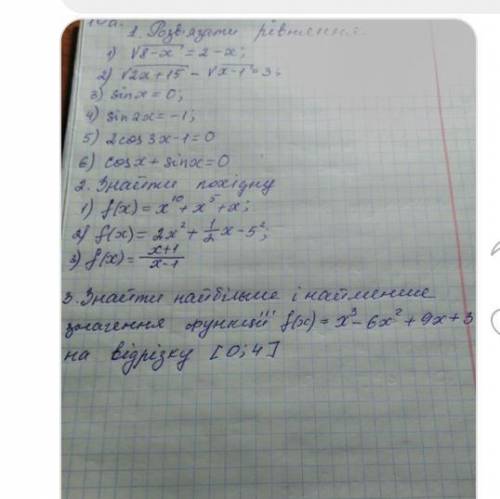 1. Розв'язати рівняння.
1) √8-x = 2-x;
2) √2x+15 - √x-1 = 3;
3) sinx = 0;
4) sin2x = -1;
5) 2cos3x-1=0
6) cosx + sinx=0
2. Знайти похідну
1) f(x) = x¹⁰ + x⁵ + x;
2) f(x) = 2x² + 1/2 x - 5²;
3) f(x) = x+1/x-1
3. Знайти найбільше і найменше
значення функції f(x) = x³ - 6x² + 9x + 3
на відрізку [0; 4]